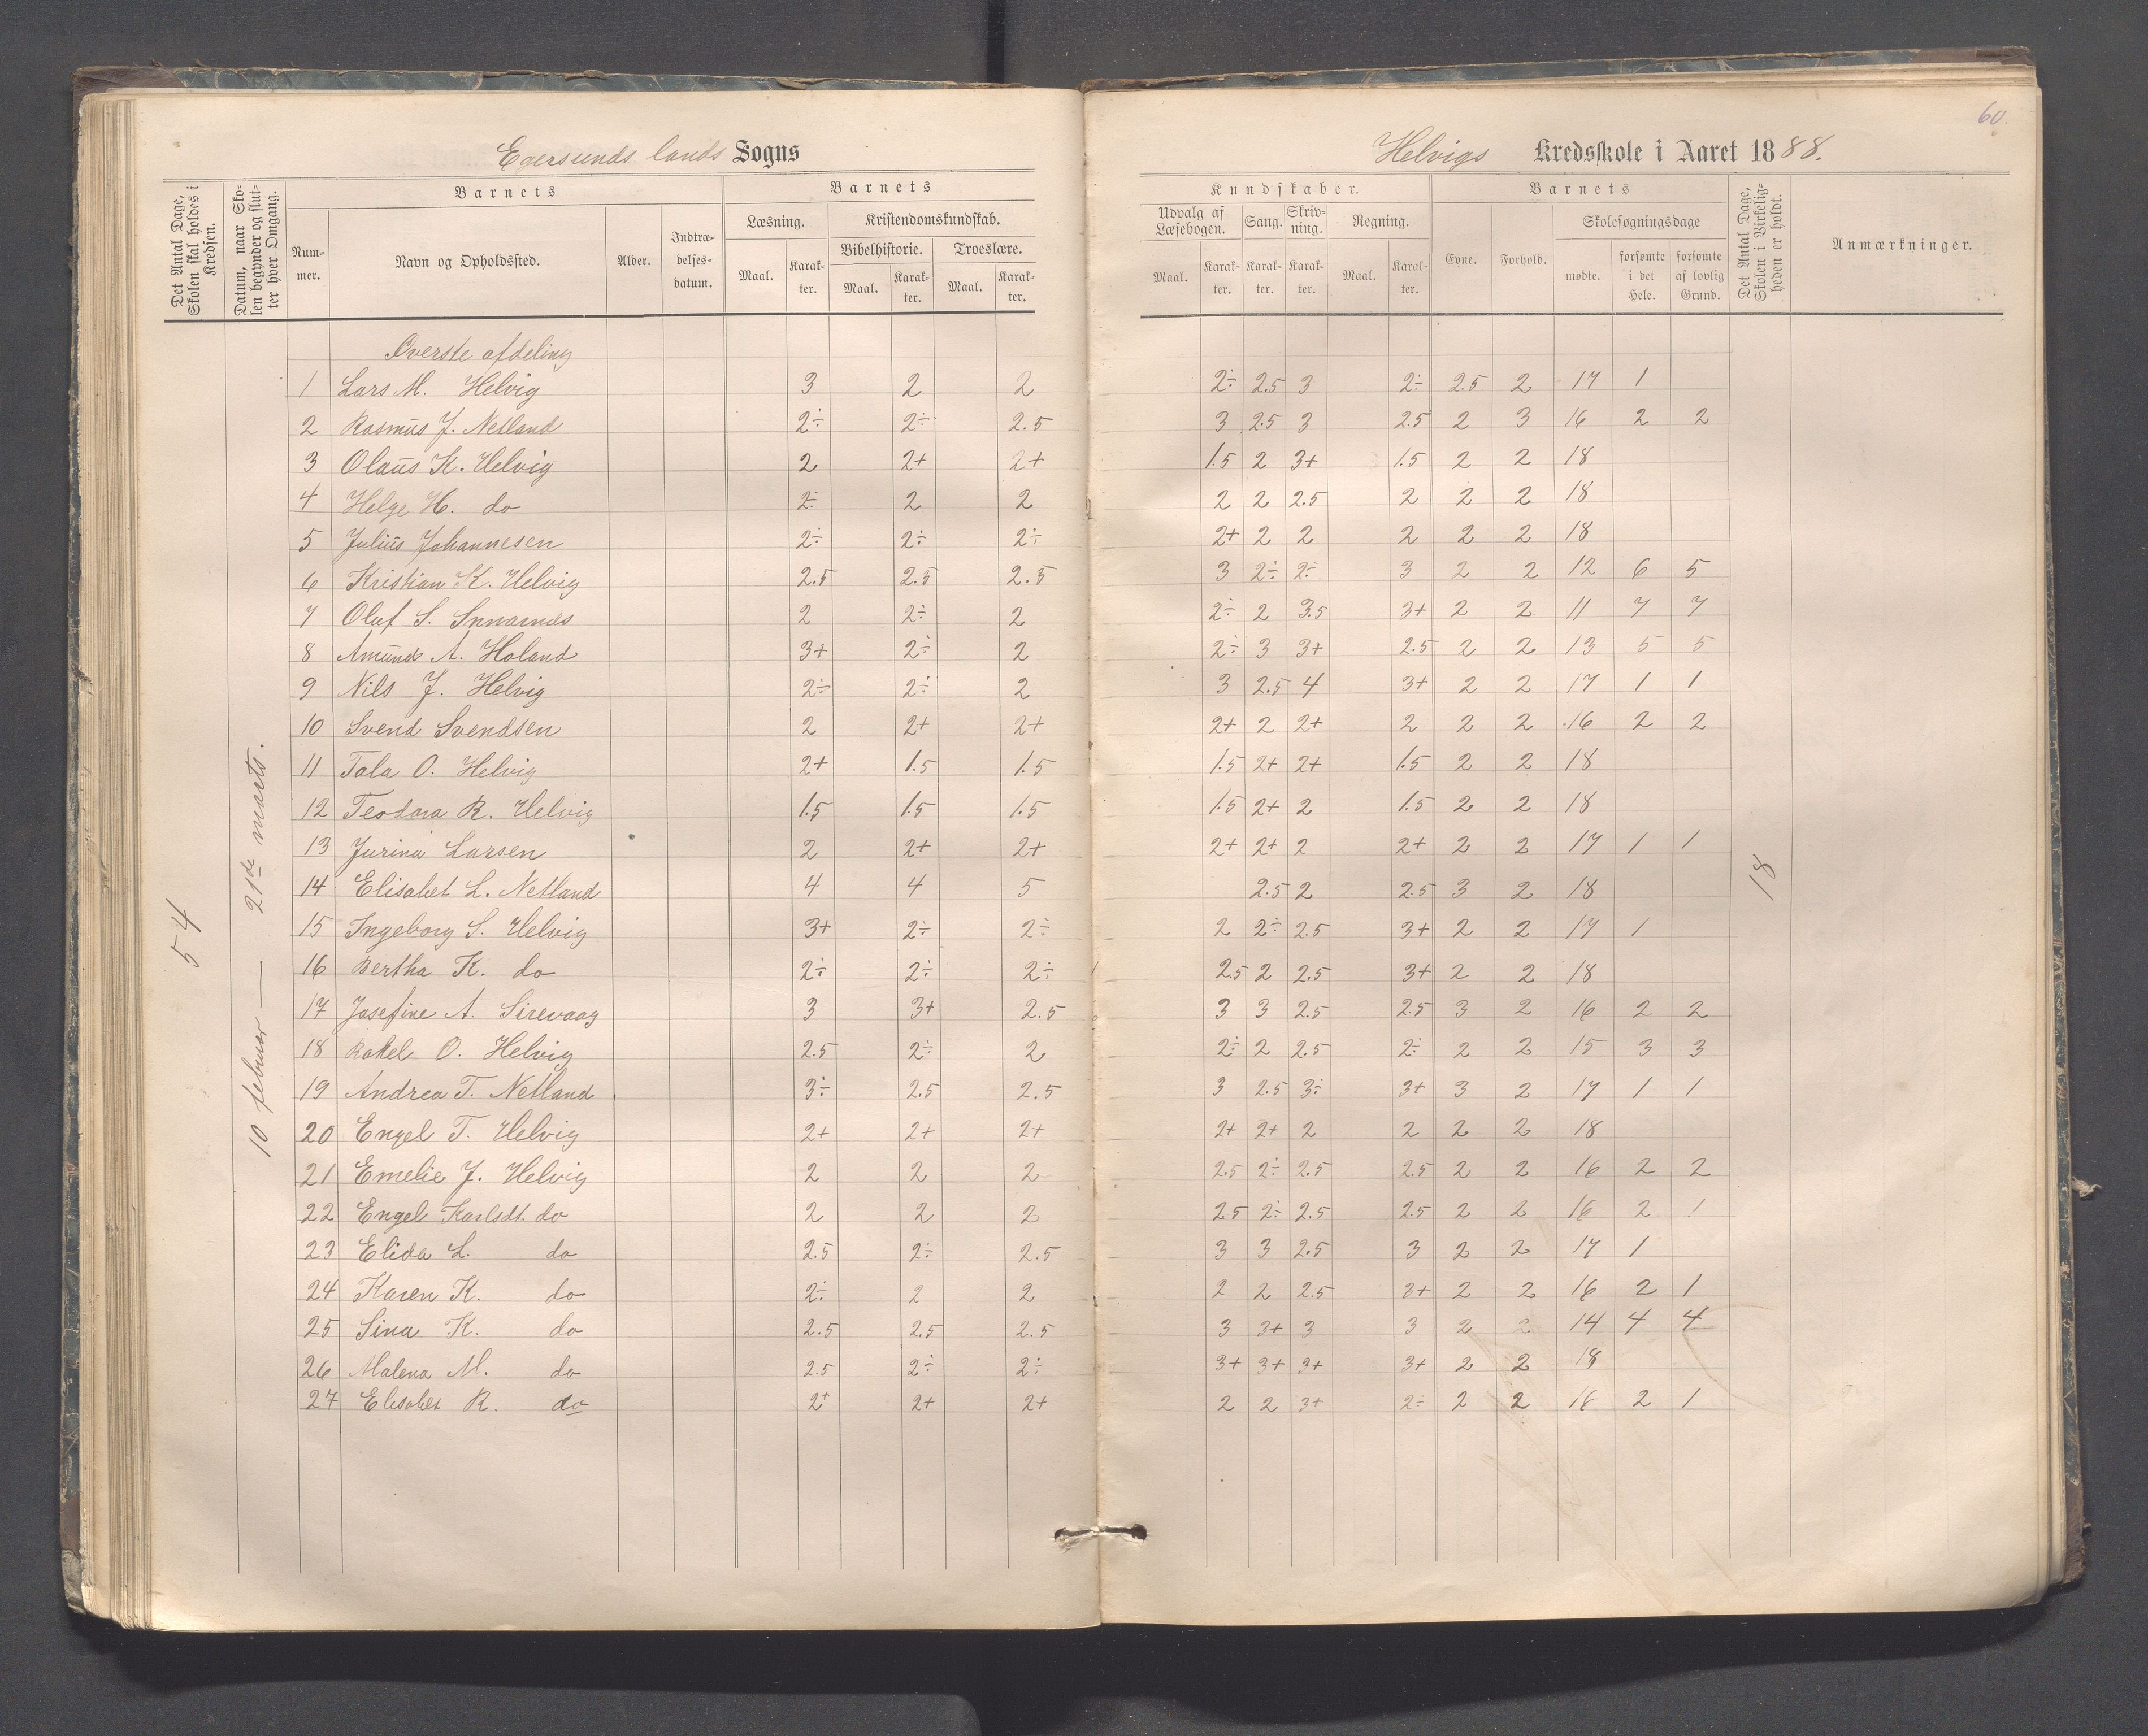 60.
Egersunds lands Sogns
Helvigs Kredsskole i Aaret 1888.
Det Antal Dage, Skolen skal holdes i Kredsen.
Datum, naar Skolen begynder og slutter hver Omgang.
Barnets
Nummer.
Navn og Opholdssted.
Alder.
Indtrædelsesdatum.
Barnets
Læsning.
Kristendomskundskab.
Bibelhistorie.
Troeslære.
Maal.
Karakter.
Maal.
Karakter.
Maal.
Karakter.
Kundskaber.
Udvalg af Læsebogen.
Sang.
Skrivning.
Regning.
Maal.
Karakter.
Karakter.
Karakter.
Maal.
Karakter.
Barnets
Evne.
Forhold.
Skolesøgningsdage
mødte.
forsømte i det Hele.
forsømte af lovlig Grund.
Det Antal Dage, Skolen i Virkeligheden er holdt.
Anmærkninger.
54
10 februar — 21de marts.
18
Øverste afdeling
1 Lars M. Helvig 3 2 2 2÷ 2.5 3 2÷ 2.5 2 17 1
2 Rasmus J. Netland 2÷ 2÷ 2.5 3 2.5 3 2.5 2 3 16 2 2
3 Olaus K. Helvig 2 2+ 2+ 1.5 2 3+ 1.5 2 2 18
4 Helge H. do 2÷ 2 2 2 2 2.5 2 2 2 18
5 Julius Johannesen 2÷ 2÷ 2÷ 2+ 2 2 2 2 2 18
6 Kristian K. Helvig 2.5 2.5 2.5 3 2÷ 2÷ 3 2 2 12 6 5
7 Oluf S. 2 2÷ 2 2÷ 2 3.5 3+ 2 2 11 7 7
8 Amund A. Holand 3+ 2÷ 2 2÷ 3 3+ 2.5 2 2 13 5 5
9 Nils J. Helvig 2÷ 2÷ 2 3 2.5 4 3+ 2 2 17 1 1
10 Svend Svendsen 2 2+ 2+ 2+ 2 2+ 2 2 2 16 2 2
11 Tala O. Helvig 2+ 1.5 1.5 1.5 2+ 2+ 1.5 2 2 18
12 Teodora R. Helvig 1.5 1.5 1.5 1.5 2+ 2 1.5 2 2 18
13 Jurina Larsen 2 2+ 2+ 2+ 2+ 2 2+ 2 2 17 1 1
14 Elisabet L. Netland 4 4 5 2.5 2 2.5 3 2 18
15 Ingeborg S. Helvig 3+ 2÷ 2÷ 2 2÷ 2.5 3+ 2 2 17 1
16 Bertha K. do 2÷ 2÷ 2÷ 2.5 2 2.5 3+ 2 2 18
17 Josefine A. Sirevaag 3 3+ 2.5 3 3 2.5 2.5 3 2 16 2 2
18 Rakel O. Helvig 2.5 2÷ 2 2÷ 2 2.5 2÷ 2 2 15 3 3
19 Andrea T. Netland 3÷ 2.5 2.5 3 2.5 3÷ 3+ 3 2 17 1 1
20 Engel T. Helvig 2+ 2+ 2+ 2+ 2+ 2 2 2 2 18
21 Emelie J. Helvig 2 2 2 2.5 2÷ 2.5 2.5 2 2 16 2 2
22 Engel Karlsdt. do 2 2 2 2.5 2÷ 2.5 2.5 2 2 16 2 1
23 Elida L. do 2.5 2÷ 2.5 3 3 2.5 3 2 2 17 1
24 Karen K. do 2÷ 2 2 2 2 2.5 3+ 2 2 16 2 1
25 Sina K. do 2.5 2.5 2.5 3 3+ 3 3 2 2 14 4 4
26 Malena M. do 2.5 2÷ 2÷ 3+ 3+ 3+ 3+ 2 2 18
27 Elisabet R. do 2+ 2+ 2+ 2 2 3+ 2÷ 2 2 16 2 1